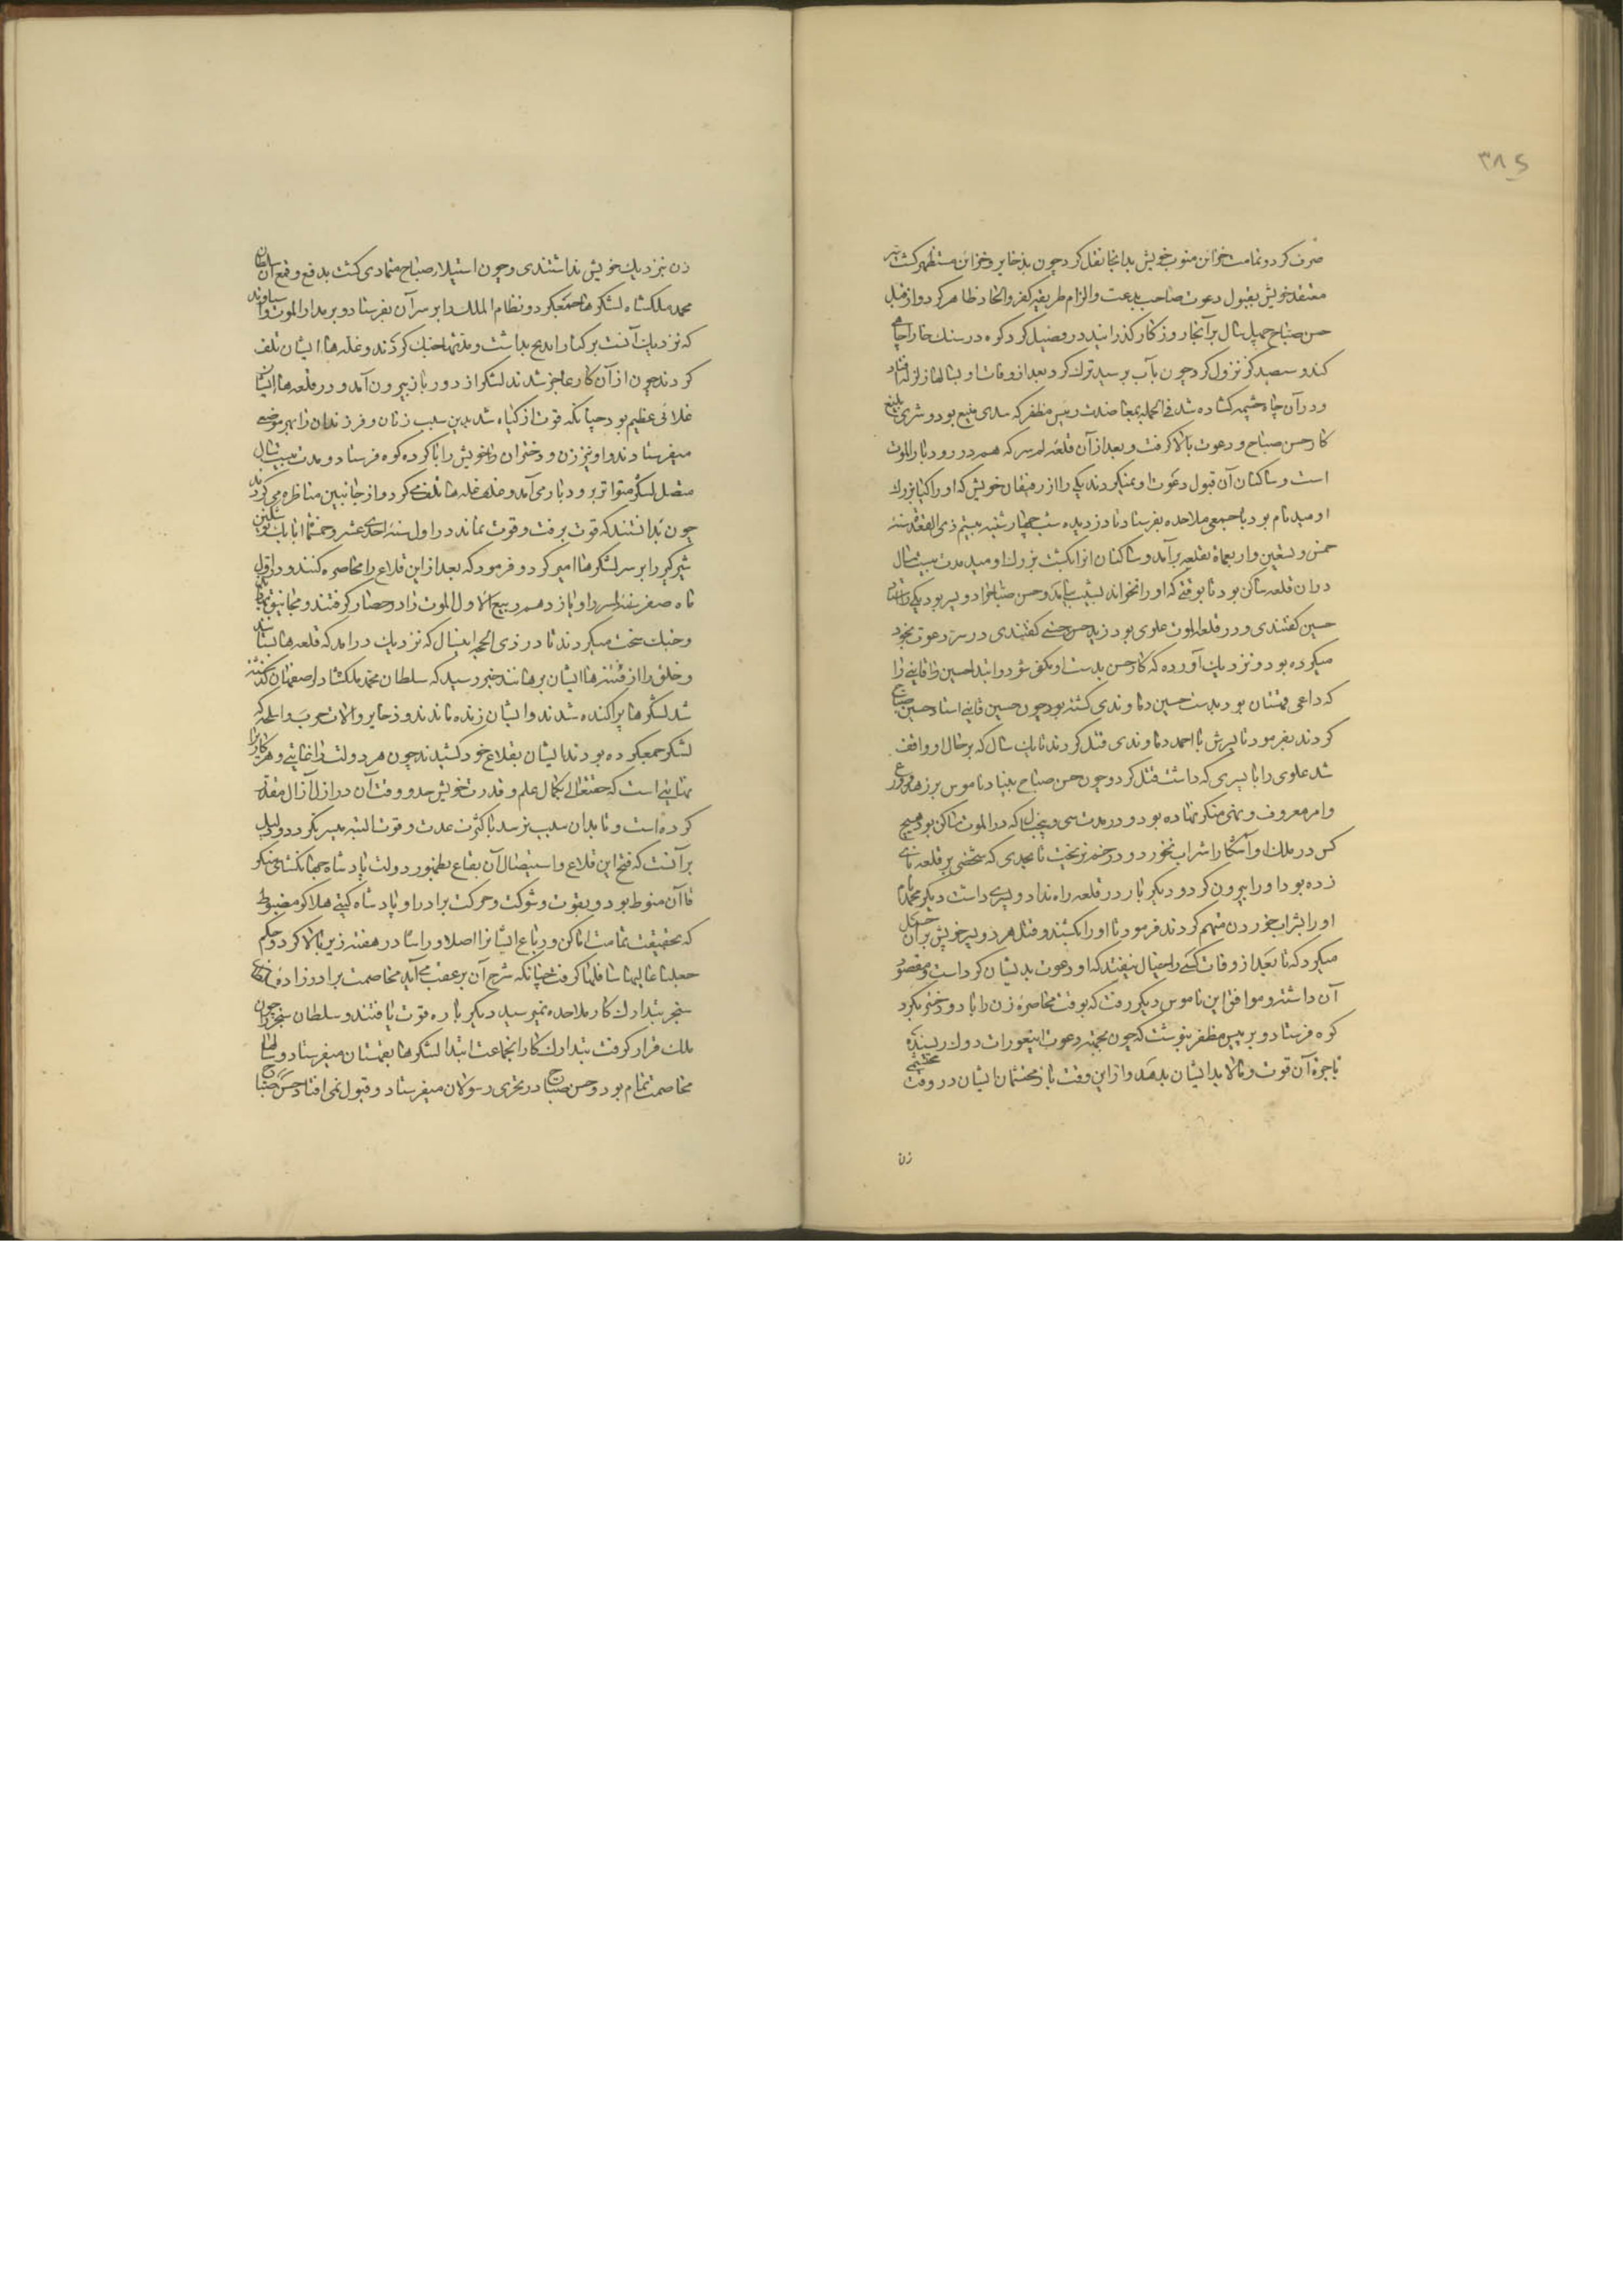 ۳۸۵
صرف کرد و تمامت خزائن منوب خویش بدانجا نقل کرد چون بذخایر و خزائن مستظهر کشت سر
معتقد خویش بقبول دعوت صاحب بدعت و الزام طریقه کفر و الحاد ظاهر کرد و از قبل
حسن صباح چهل سال بر آنجا روزکار کذرانید در فصیل کرد کوه در سنک خارا چاهی
کند و سیصد کز نزول کرد چون بآب نرسید ترک کرد بعد از وفات او بسالها زلزله افتاد
و در آن چاه چشمه کشاده شد فی الجمله بمعاضدت رییس مظفر که سدی منیع بود و شری بلیغ
کار حسن صباح و دعوت بالا کرفت و بعد از آن قلعه لمسر که هم در رودبار الموت
است و ساکنان آن قبول دعوت او نمیکردند یکی را از رفیقان خویش که او را کیا بزرک
اومید نام بود با جمعی ملاحده بفرستاد تا دزدیده شب چهارشنبه بیستم ذی القعده سنه
خمس و تسعین و اربعمائه بقلعه برآمد و ساکنان انرا بکشت بزرک اومید مدت بیست سال
در ان قلعه ساکن بود تا بوقتی که او را نخواند بشیب نیامد و حسن صباح را دو پسر بود یکی را استاد
حسین کفتندی و در قلعه الموت علوی بود زید حسنی کفتندی در سر دعوت بخود
میکرده بود و نزدیک آورده که کار حسن بدست او مکفی شود و ابتدا حسین قاینی را
که داعی قهستان بود بدست حسین دماوندی کشته بود چون حسین قاینی استاد حسین صباح
کردند بفرمود تا پسرش با احمد دماوندی قتل کردند تا یک سال که بر حال او واقف
شد علوی را با پسری که داشت قتل کرد و چون حسن صباح بنیاد ناموس بر زهد و ورع
و امر معروف و نهی منکر نهاده بود و در مدت سی و پنج سال که در الموت ساکن بود هیچ
کس در ملک او آشکارا شراب نخورد و در خم نریخت تا بحدی که شخصی بر قلعه نای
زده بود او را بیرون کرد و دیکر بار در قلعه راه نداد و پسری داشت دیکر محمد نام
او را بشراب خوردن متهم کردند فرمود تا او را بکشتند و قتل هر دو پسر خویش بر آن حمل
میکرد که تا بعد از وفات کسی را خیال نیفتد که او دعوت بدیشان کرد است و مقصود
آن داشته و موافق این ناموس دیکر رفت که بوقت محاصره زن را با دو دختر بکرد
کوه فرستاد و بر رییس مظفر بنوشت که چون بجهة دعوت این عورات دوک ریسند
باجرة آن قوت و مالا بد ایشان بدهد و از این وقت باز محتشمان ایشان در وقت محتشمی
زن
زن بنزدیک خویش نداشتندی و چون استیلاء صباح متمادی کشت بدفع و قمع آن سلطان
محمد ملکشاه لشکرها جمع کرد و نظام الملک را بر سر آن بفرستاد و بر مدار الموت و استاوند
که نزدیک آنست بر کنار اندج بداشت و مدتها جنک کردند و غله ها ایشان تلف
کردند چون از آن کار عاجز شدند لشکر از رودبار بیرون آمد و در قلعه ها ایشان
غلائی عظیم بود چنانکه قوت از کیاه شد بدین سبب زنان و فرزندان را بهر موضعی
میفرستادند و او نیز زن و دختران خویش را با کرده کوه فرستاد و مدت هشت سال
متصل لشکر متواتر برودبار می آمد و غله ها تلف کرد و از جانبین مناظره می کردند
چون بدانستند که قوت برفت و قوت نماند در اول سنه احدی عشر و خمسمائه اتابک نوشتکین
شیرکیر را بر سر لشکرها امیر کرد و فرمود که بعد از این قلاع را محاصره کنند و در اول
ماه صفر بنه لمسر را و یازدهم ربیع الاول الموت را در حصار کرفتند و مجانیق نهادند
و جنک سخت میکردند تا در ذی الحجه اینسال که نزدیک درامد که قلعه ها بستانند
و خلق را از فتنه ها ایشان برهانند خبر رسید که سلطان محمد ملکشاه در اصفهان کذشته
شد لشکرها پراکنده شدند و ایشان زنده ماندند و ذخایر و آلات حرب و اسلحه که
لشکر جمع کرده بودند ایشان بقلاع خود کشیدند چون هر دولت را غایتی و هر کار را
نهایتی است که حقتعالی بکمال علم و قدرت خویش حد و وقت آن در ازل آزال مقدر
کرده است و تا بدان سبب نرسد با کثرت عدت و قوت البته میسر نکردد و دلیل
بر آنست که فتح این قلاع و استیصال آن بقاع بظهور دولت پادشاه جهانکشای منکو
قاآن منوط بود و بقوت و شوکت و حرکت برادر او پادشاه کیتی هلاکو مضبوط
که بحقیقت تمامت اماکن و رباع ایشانرا اصلا و راسا در هفته زیر بالا کرد و حکم
جعلنا عالیها سافلها کرفت چنانکه شرح آن بر عقب می آید مخاصمت برادرزاده
سنجر بتدارک کار ملاحده نمیرسید دیکر باره قوت یافتند و سلطان سنجر را چون
ملک قرار کرفت بتدارک کار انجماعت ابتدا لشکرها بقهستان میفرستاد و سالها
مخاصمت تمام بود و حسن صباح در تحری رسولان میفرستاد و قبول نمی افتاد حسن صباح